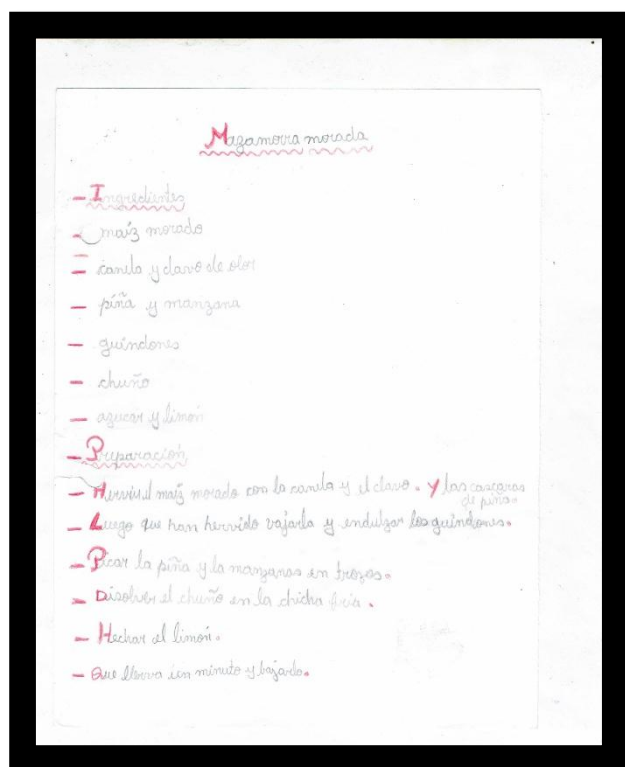 Mazamorra morada
- Ingredientes
- maíz morado
- canela y clavo de olor
- piña y manzana
- guindones
- chuño
- azucar y limón
- Preparación
- Hervir el maíz morado con la canela y el clavo. Y las cascaras
de piña.
- Luego que han hervido vajarla y endulzar los guindones.
- Picar la piña y la manzanas en trozos.
- Disolver el chuño en la chicha fria.
- Hechar el limón.
- Que hierva un minuto y bajarlo.